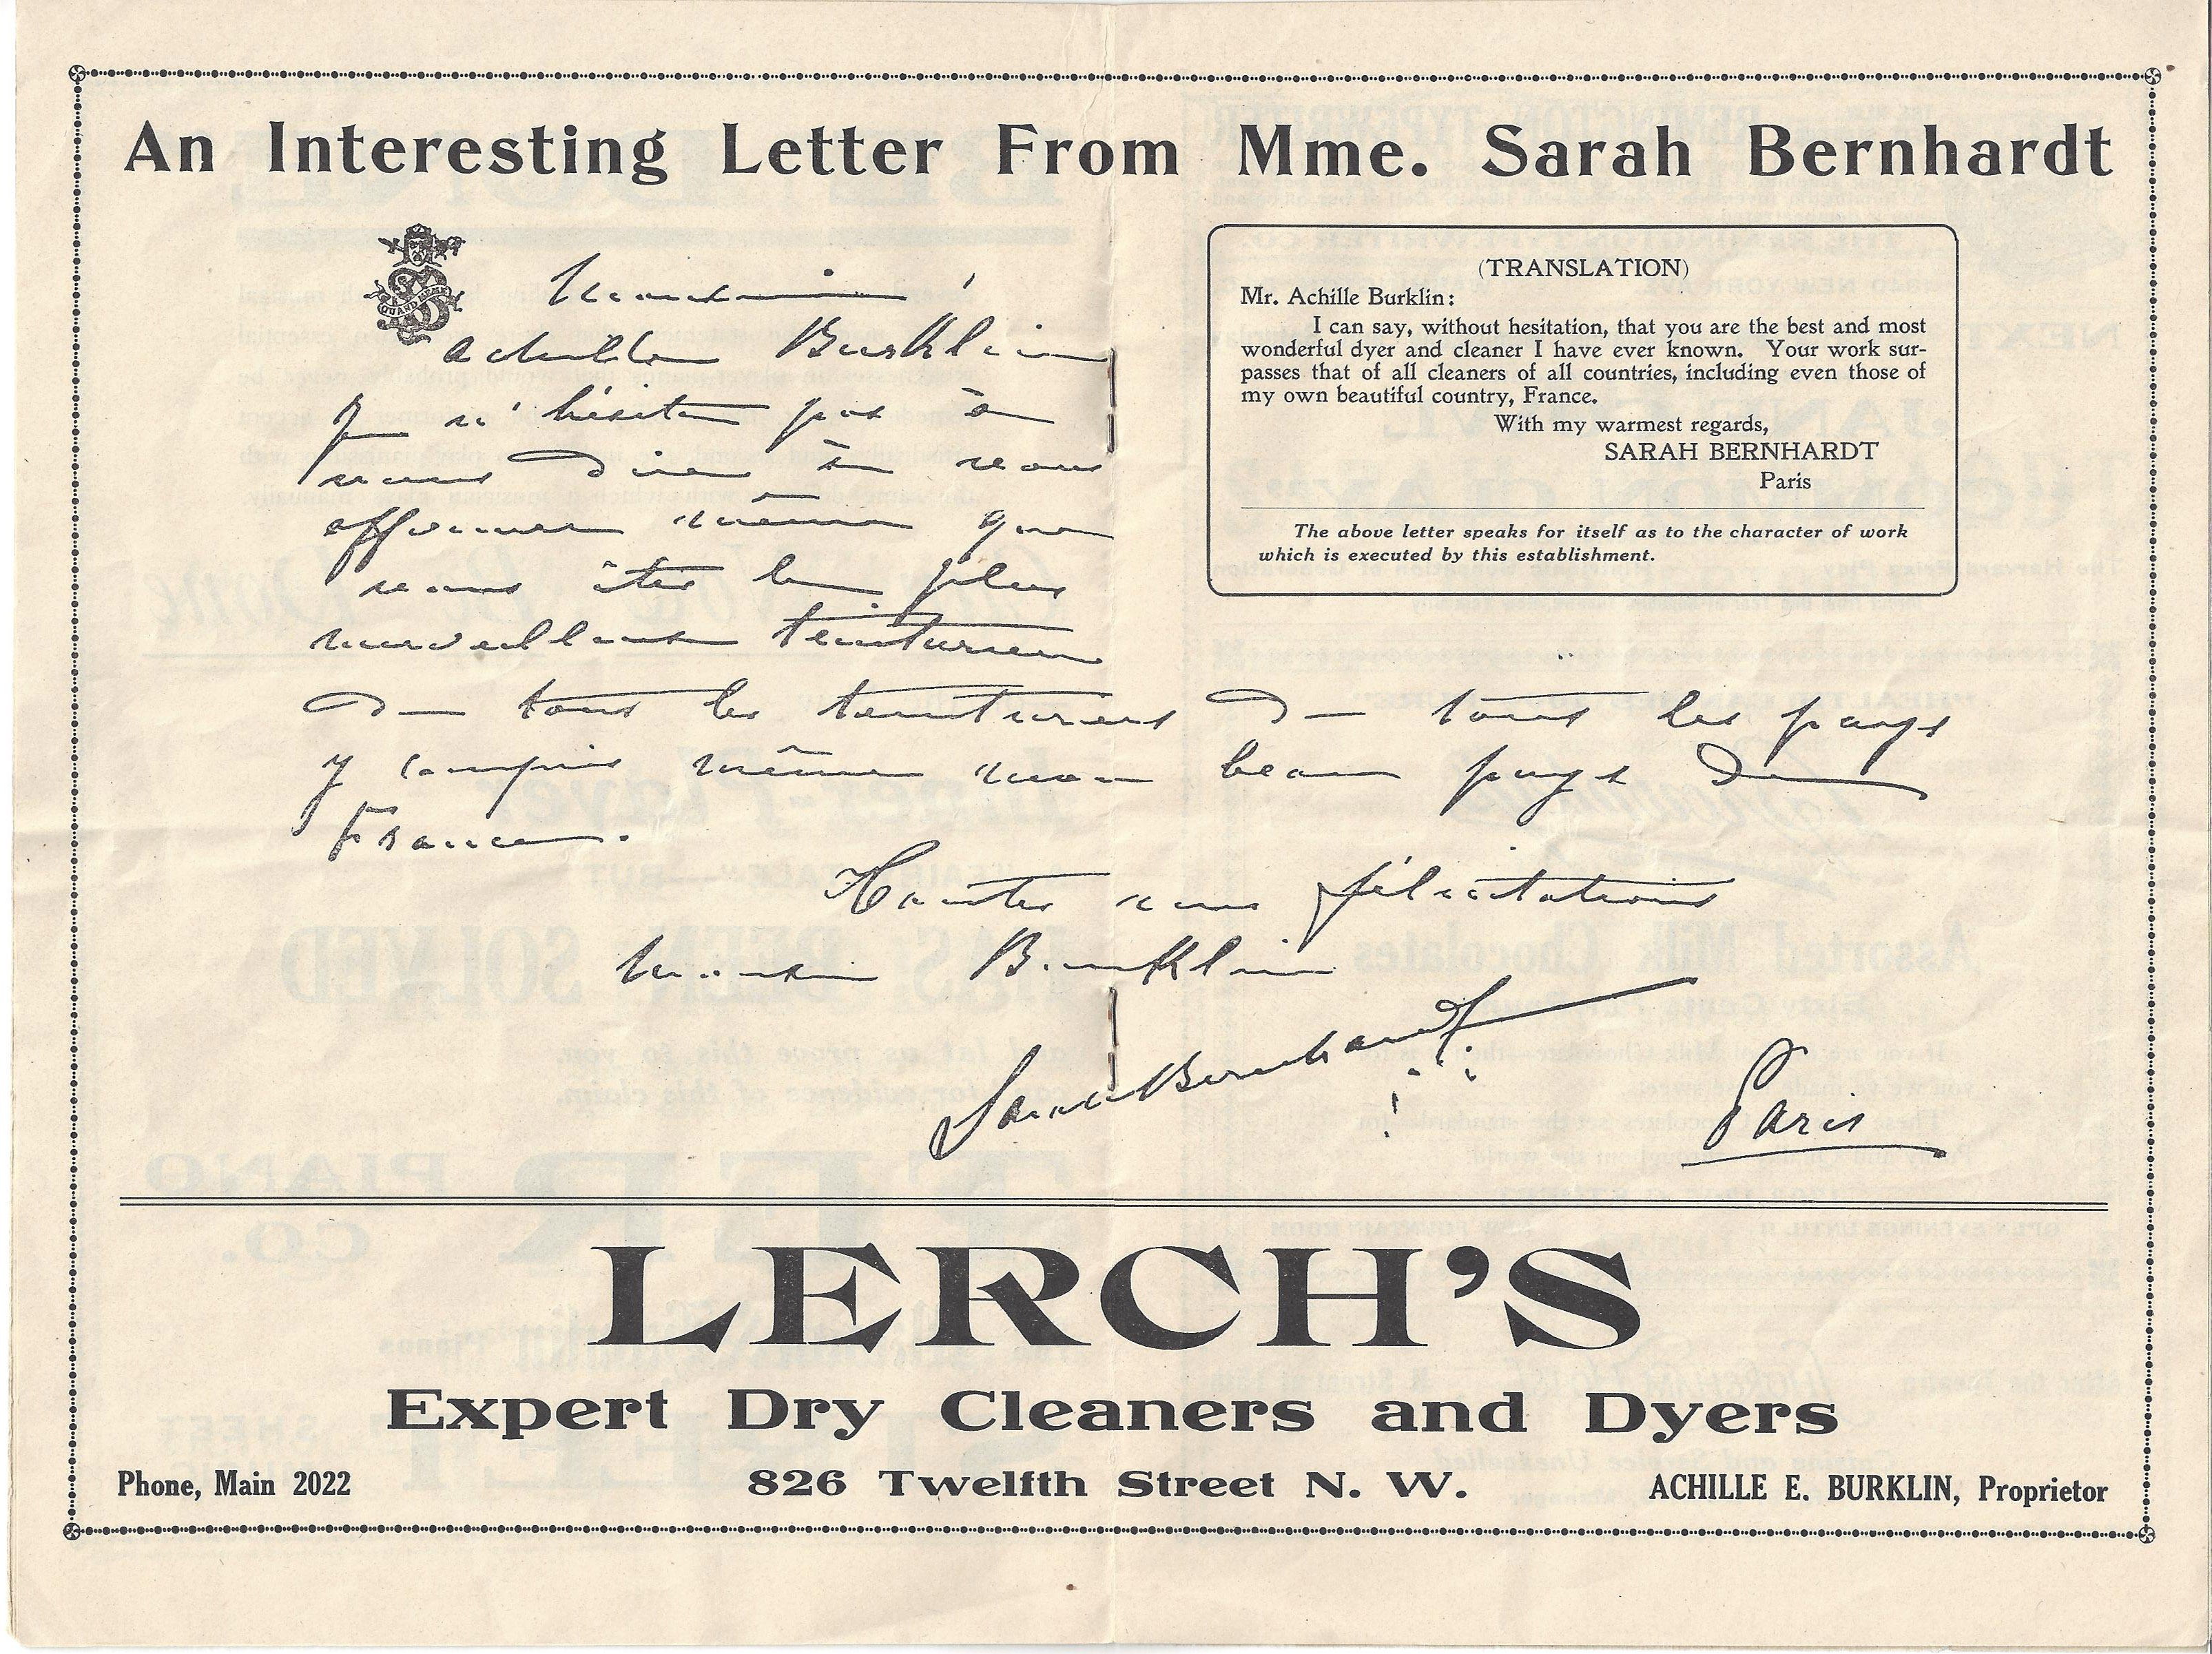 An Interesting Letter From Mme. Sarah Bernhardt
QUAND MEME
Monsieur
Achille Burklin
Je n'hésite pas à
vous dire à vous
affirmer même que
vous êtes le plus
merveilleux teinturier
de tous les teinturiers de tous les pays
y compris même mon beau pays de
France.
Toutes mes félicitations
Monsieur Burklin
Sarah Bernhardt
Paris
(TRANSLATION)
Mr. Achille Burklin:
I can say, without hesitation, that you are the best and most
wonderful dyer and cleaner I have ever known. Your work sur-
passes that of all cleaners of all countries, including even those of
my own beautiful country, France.
With my warmest regards,
SARAH BERNHARDT
Paris
The above letter speaks for itself as to the character of work
which is executed by this establishment.
LERCH'S
Expert Dry Cleaners and Dyers
Phone, Main 2022 826 Twelfth Street N. W. ACHILLE E. BURKLIN, Proprietor